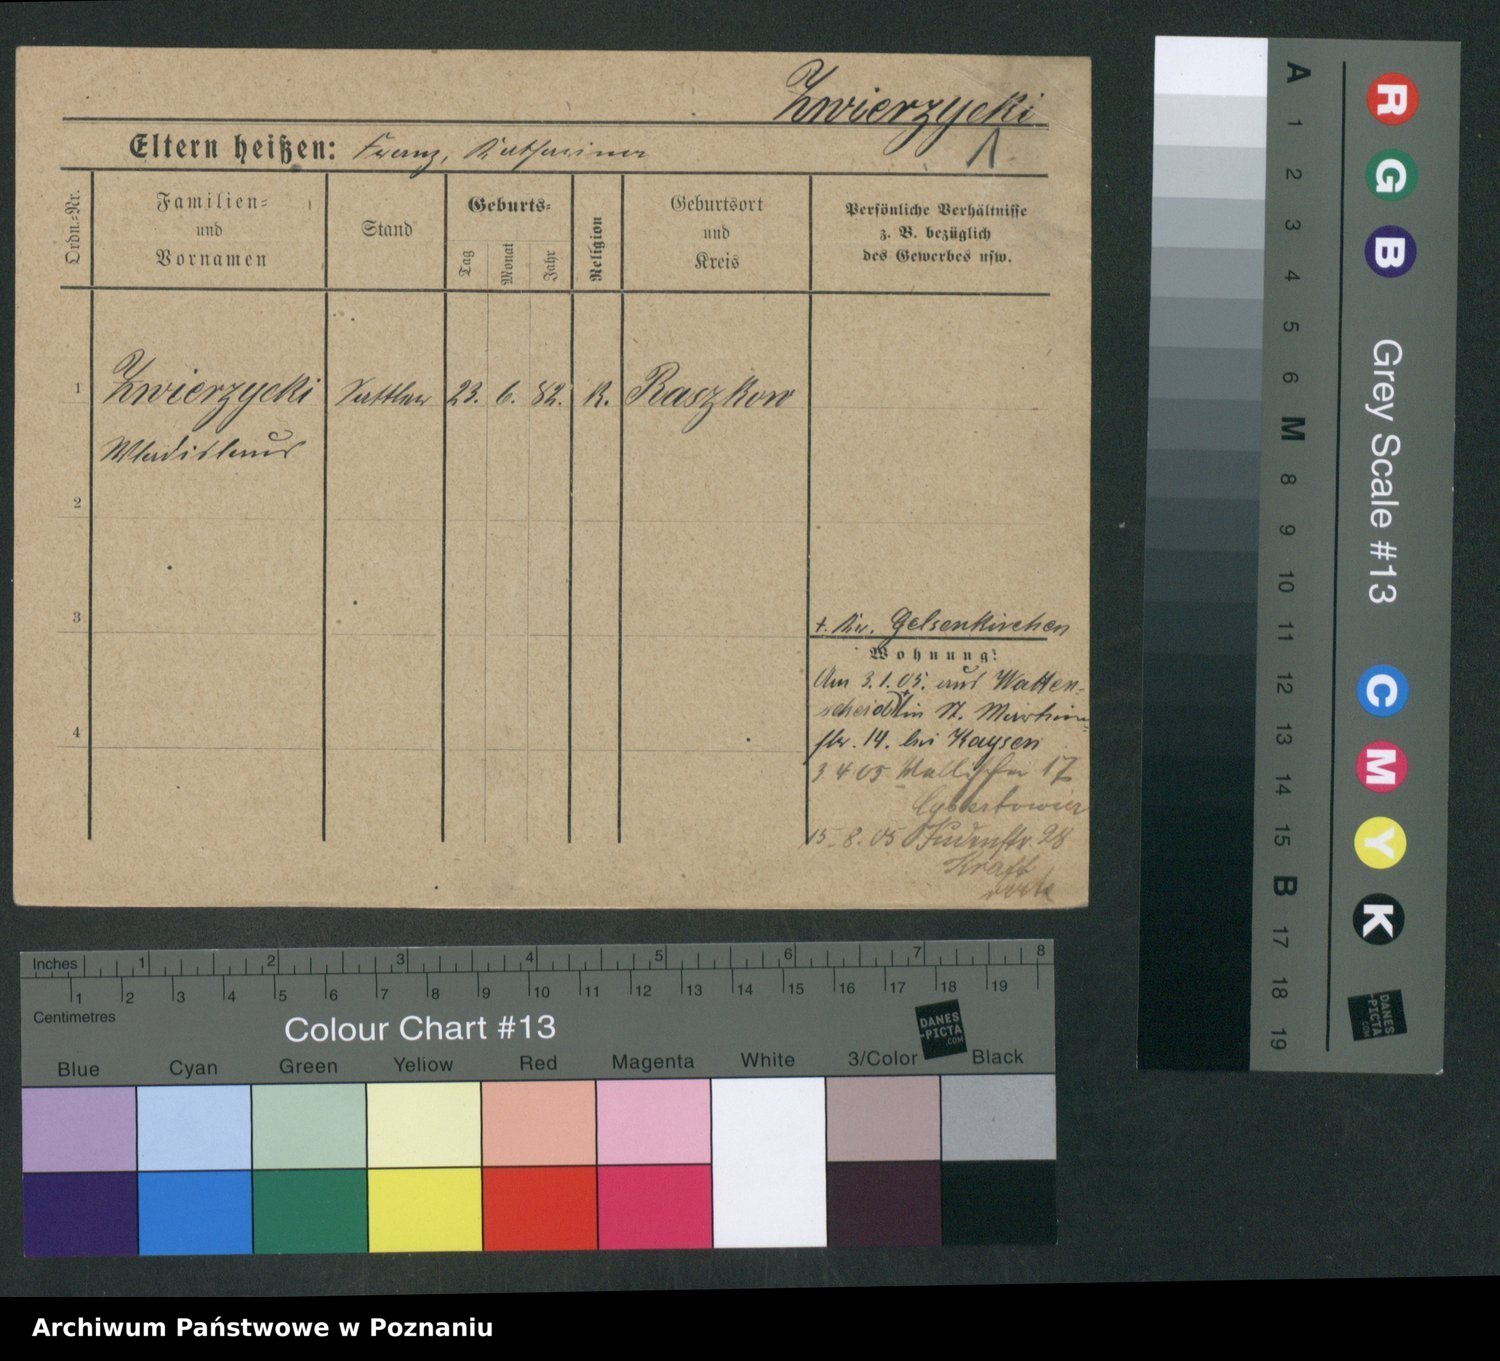 Zwierzycki
Eltern heißen: Franz, Katharina
Ordn.-Nr.
Familien-
und
Vornamen
Stand
Geburts-
Tag
Monat
Jahr
Religion
Geburtsort
und
Kreis
Persönliche Verhältnisse
z. B. bezüglich
des Gewerbes usw.
1 Zwierzycki Sattler 23. 6. 82. K. Raszkow
Wladislaus
2
3
4
Gelsenkirchen
Wohnung:
Am 3.1.05. aus Watten-
scheidt in St. Martin-
str. 14. bei Kaysen
3 4 05 Wallischei 17
15. 8. 05 Judenstr. 28
Kraft
A 1 2 3 4 5 6 M 8 9 10 11 12 13 14 15 B 17 18 19
R G B
Grey Scale #13
C M Y K
DANES
-PICTA
.COM
Inches 1 2 3 4 5 6 7 8
1 2 3 4 5 6 7 8 9 10 11 12 13 14 15 16 17 18 19
Centimetres
Colour Chart #13
DANES
-PICTA
.COM
Blue Cyan Green Yellow Red Magenta White 3/Color Black
Archiwum Państwowe w Poznaniu